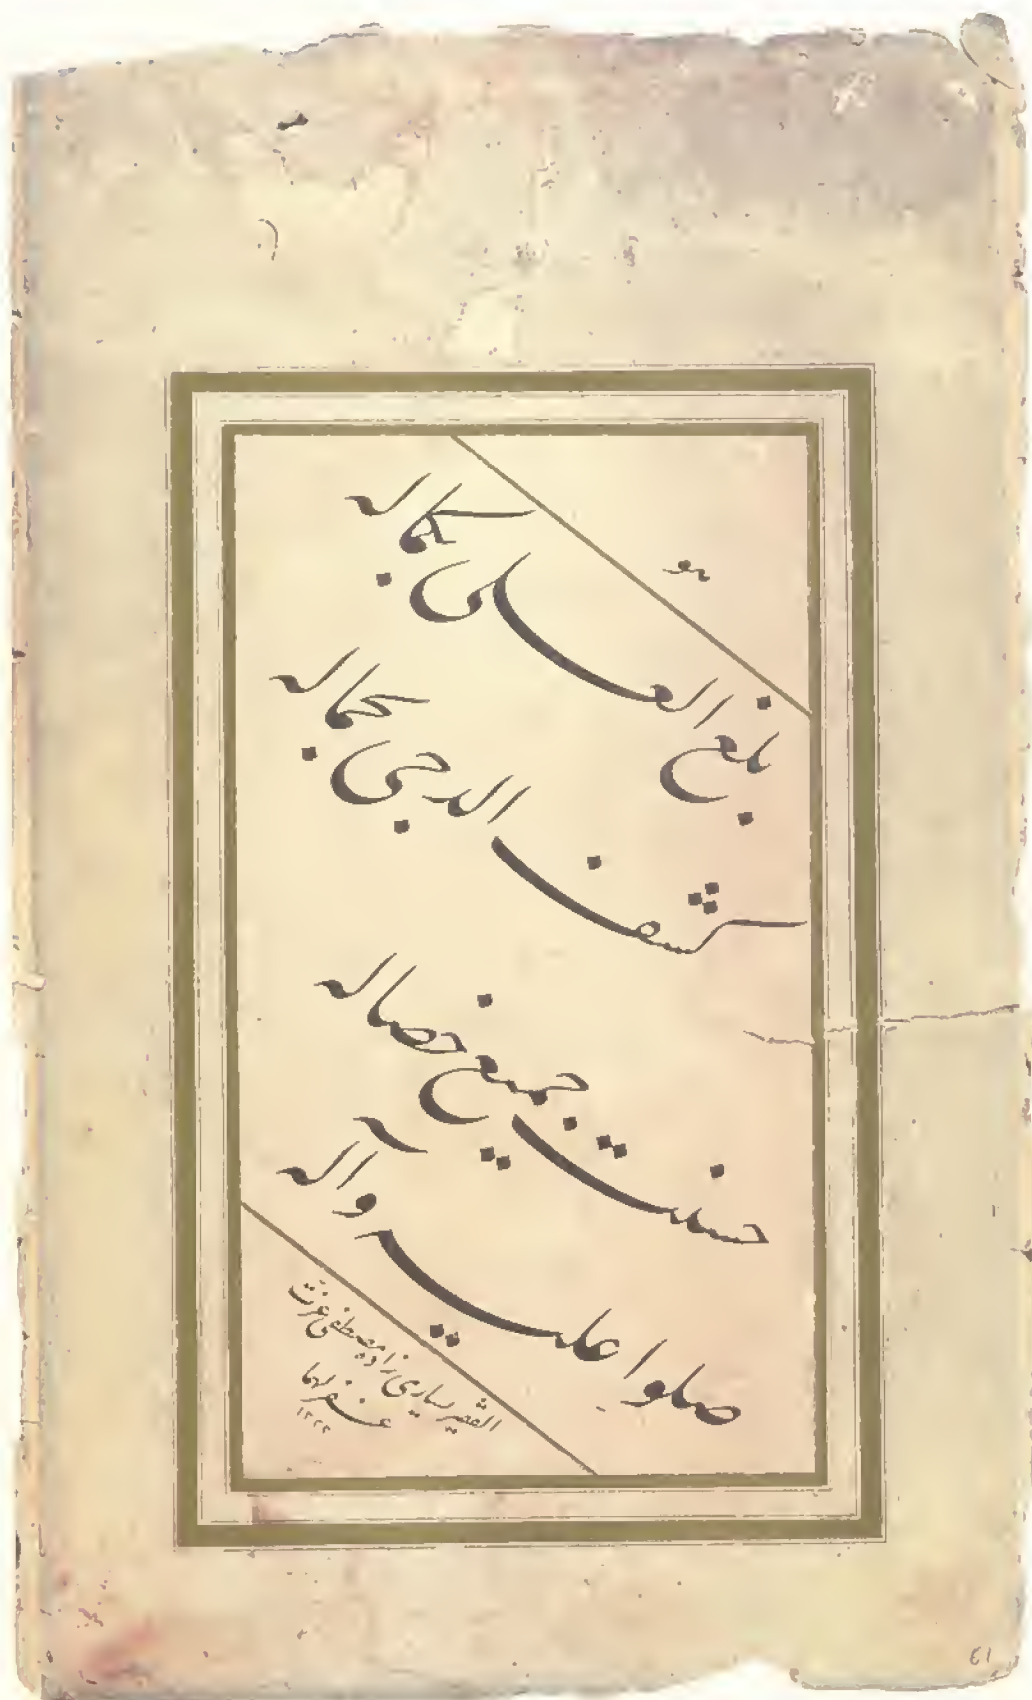 هو
بلغ العلى بكماله
كشف الدجى بجماله
حسنت جميع خصاله
صلوا عليه وآله
الفقير يساري زاده مصطفى عزت
غفر لهما
١٢٢٢
٤١